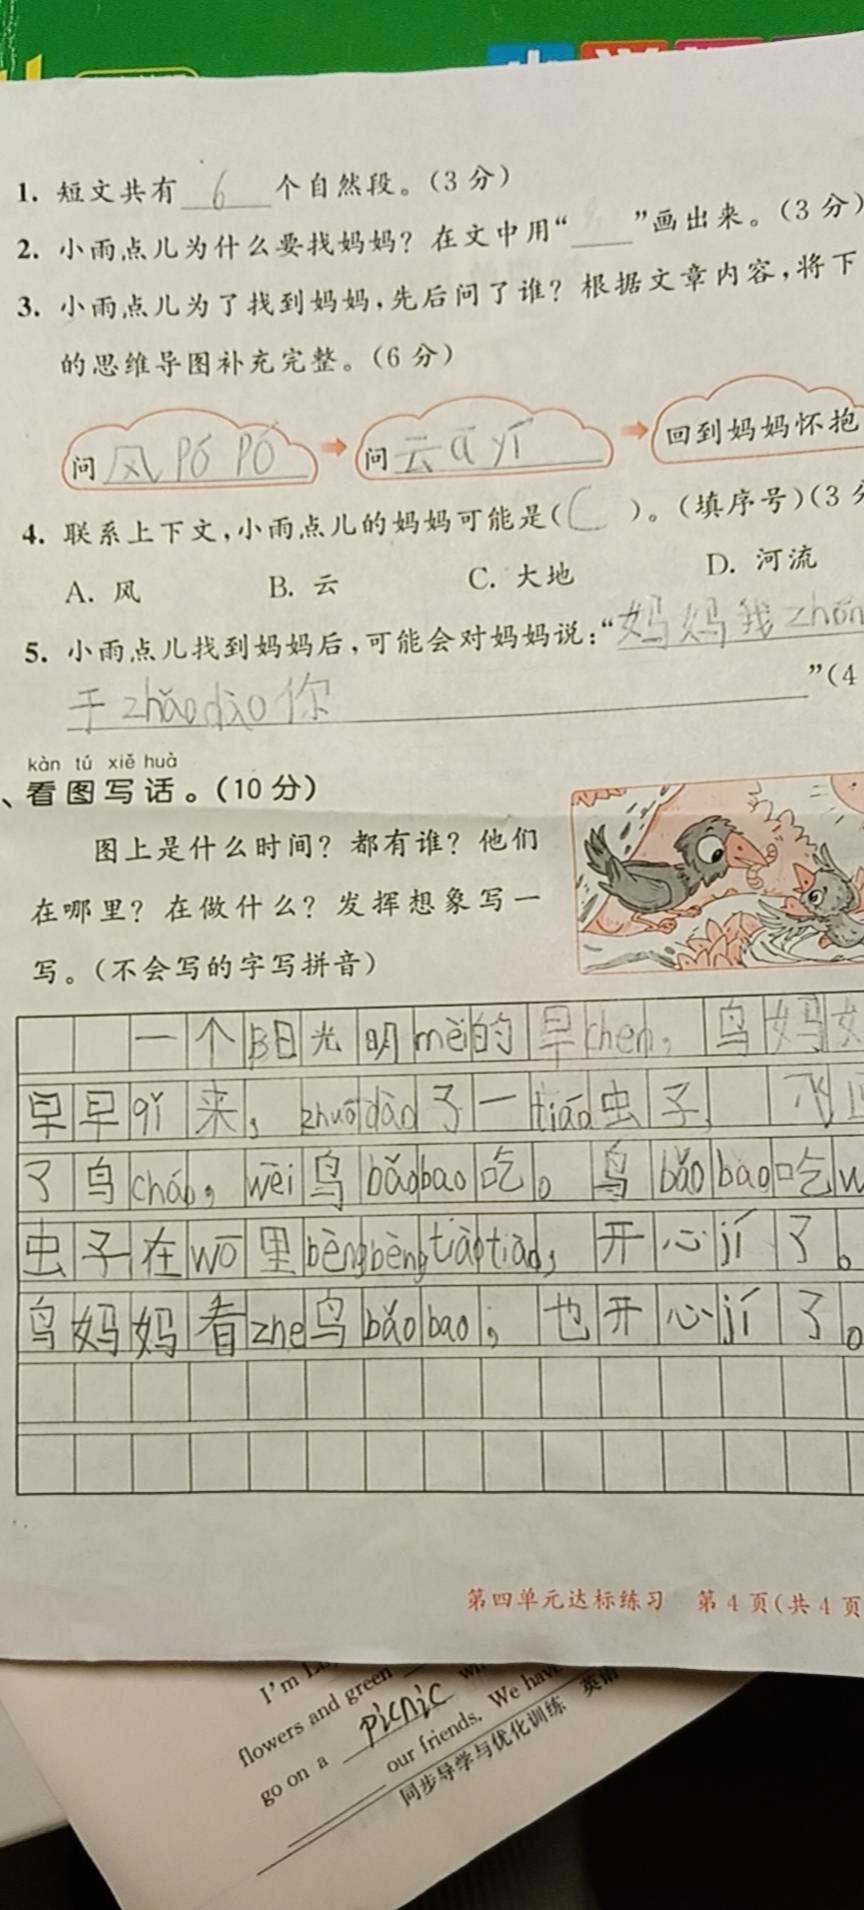 1. 短文共有 6 个自然段。(3 分)
2. 小雨点儿为什么要找妈妈？在文中用“____”画出来。(3 分)
3. 小雨点儿为了找到妈妈，先后问了谁？根据文章内容，将下
的思维导图补充完整。(6 分)
问风pó pó 问云ā yí 回到妈妈怀抱
4. 联系上下文，小雨点儿的妈妈可能是( C )。(填序号)(3
A. 风 B. 云 C. 大地 D. 河流
5. 小雨点儿找到妈妈后，可能会对妈妈说：“妈妈我zhōn
于zhǎodào你 ”(4
kàn tú xiě huà
、看图写话。(10 分)
图上是什么时间？都有谁？他们
在哪里？在做什么？发挥想象写一
写。(不会写的字写拼音)
一个阳光明mèi的早chen，鸟妈
早早qǐ来，zhuōdào了一tiáo虫子，飞
了鸟cháo，wèi鸟bǎobao吃。鸟bǎobao吃w
虫子在wō里bèngbèngtiàotiào，开心jí了。
鸟妈妈看zhe鸟bǎobao，也开心jí了。
第四单元达标练习 第 4 页(共 4 页
I'm
flowers and green
go on a picnic
our friends. We hav
同步导学与优化训练 英语